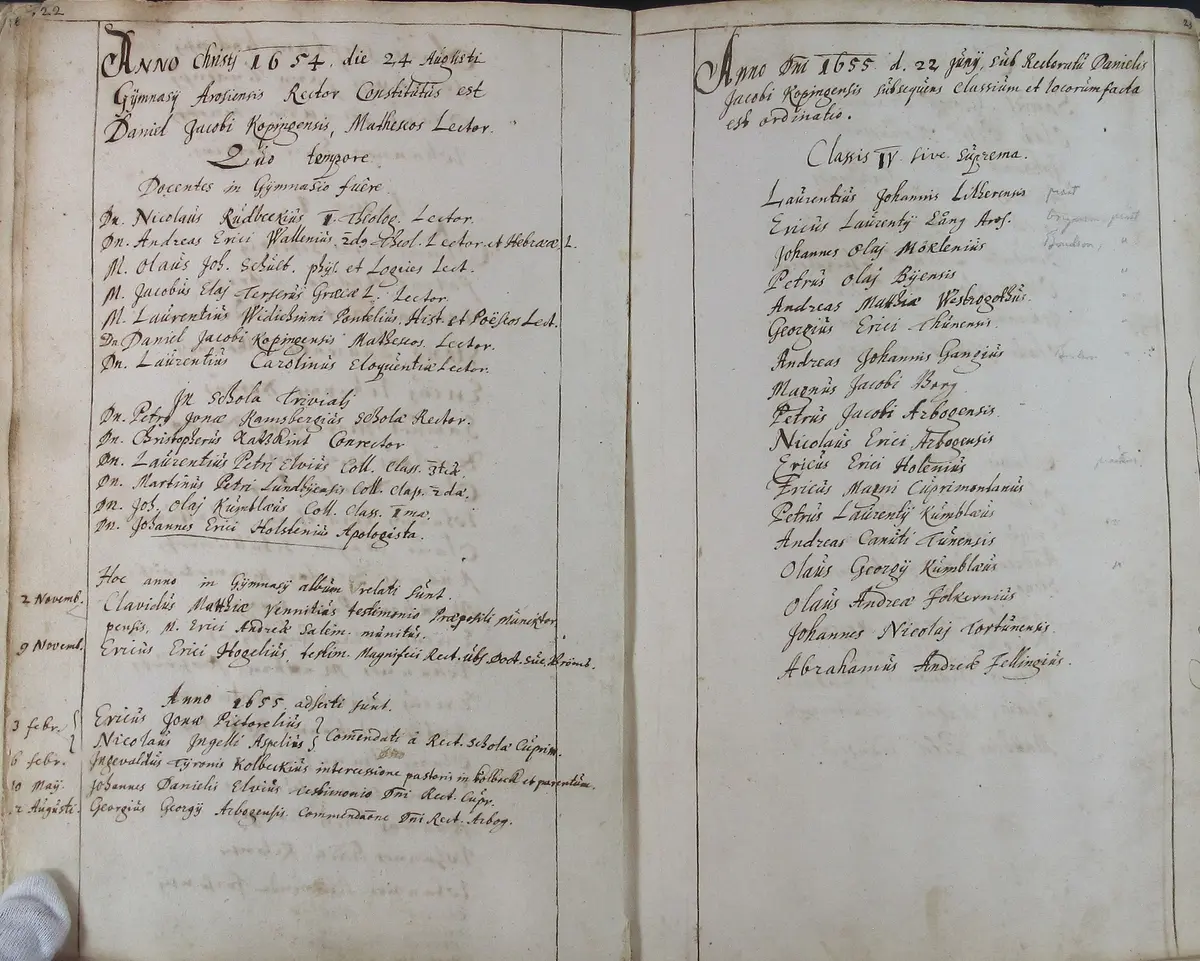 22
ANNO Christi 1654. die 24 Augusti
Gÿmnasÿ Arosiensis Rector Constitutus est
Daniel Jacobi Kopingensis, Matheseos Lector.
Quo tempore
Docentes in Gÿmnasio fuêre
Dn. Nicolaus Rudbeckius I Theolog. Lector.
Dn. Andreas Erici Wallenius 2dg Theol. Lector et Hebraeae L.
M. Olaus Joh. Schult. phÿs et Logices Lect.
M. Jacobus Elaj Terserus Graecae L. Lector.
M. Laurentius Widichinni Pontelius. Hist. et Poëseos Lect.
Dn Daniel Jacobi Kopingensis Matheseos. Lector.
Dn. Laurentius Carolinus Eloquentiae Lector.
In Schola Trivialj
Dn. Petr9 Jonae Ramsbergius Scholae Rector.
Dn. Christopherus Katzkint Conrector
Dn. Laurentius Petri Elvius Coll. Class. 3tiae.
Dn. Martinus Petri Lundbÿensis Coll. Class. 2dae.
Dn. Joh. Olaj Kumblaeus Coll. Class. Imae.
Dn. Johannes Erici Holstenius Apologista.
Hoc anno in Gÿmnasÿ album relati sunt.
2 Novemb. Clavidus Matthiae Vennitius testimonio Praepositi Muncktor
pensis. M. Erici Andreae Salem. munitus.
9 Novemb. Ericus Erici Hogelius, testim. Magnifici Rect. Ubs. Doct.
Anno 1655 adscti sunt.
3 febr. Ericus Jonae Pictorelius
Nicolaus Ingelli Aspelius Comendati â Rect. Scholae Cuprim.
6 febr. Ingevaldus Tÿronis Kolbeckius intercessione pastoris in Kolbeck et parentum.
10 Maÿ. Johannes Danielis Elvius testimonio Dni Rect. Cupr.
12 Augusti. Georgius Georgÿ Arbogensis commendaone Dni Rect. Arbog.
Anno Dni 1655 d. 22 Junÿ, sub Rectoratu Danielis
Jacobi Kopingensis subsequens Classium et locorum facta
est ordinatio.
Classis IV. sive Suprema.
Laurentius Johannis Litherensis
Ericus Laurentÿ Lång Aros.
Johannes Olaj Möklenius
Petrus Olaj Bÿensis
Andreas Matthiae Westrogothus.
Georgius Erici Thunensis.
Andreas Johannis Gangius
Magnus Jacobi Borg
Petrus Jacobi Arbogensis
Nicolaus Erici Arbogensis
Ericus Erici Holenius
Ericus Magni Cuprimontanus
Petrus Laurentÿ Kumblaeus
Andreas Canuti Tunensis
Olaus Georgÿ Kumblaeus
Olaus Andreae Folkernius
Johannes Nicolaj Tortunensis.
Abrahamus Andreae Fellingius.